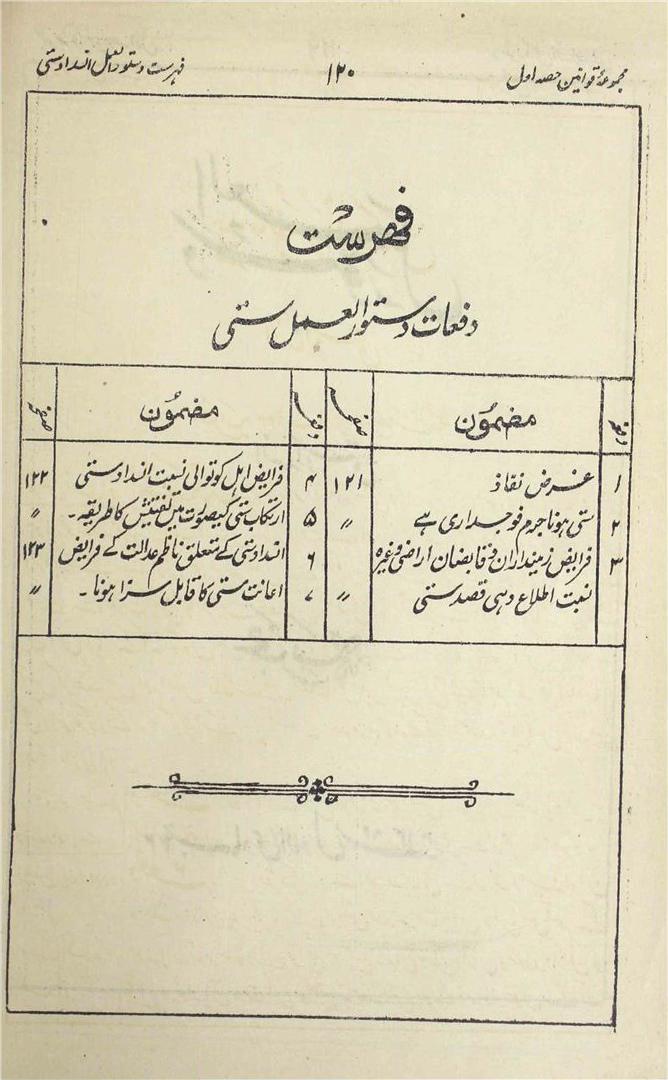 مجموعۂ قوانین حصہ اول ۱۲۰ فہرست دستورالعمل انسدادستی
فہرست
دفعات دستورالعمل ستی
دفعہ مضمون صفحہ دفعہ مضمون صفحہ
۱ غرض نفاذ ۱۲۱ ۴ فرایض اہل کوتوالی نسبت انسدادستی ۱۲۲
۲ ستی ہونا جرم فوجداری ہے ״ ۵ ارتکاب ستی کیصورت میں تفتیش کا طریقہ۔ ״
۳ فرایض زمینداران و قابضان اراضی وغیرہ ۶ انسدادستی کے متعلق ناظم عدالت کے فرایض ۱۲۳
نسبت اطلاع دہی قصد ستی ״ ۷ اعانت ستی کا قابل سزا ہونا۔ ״